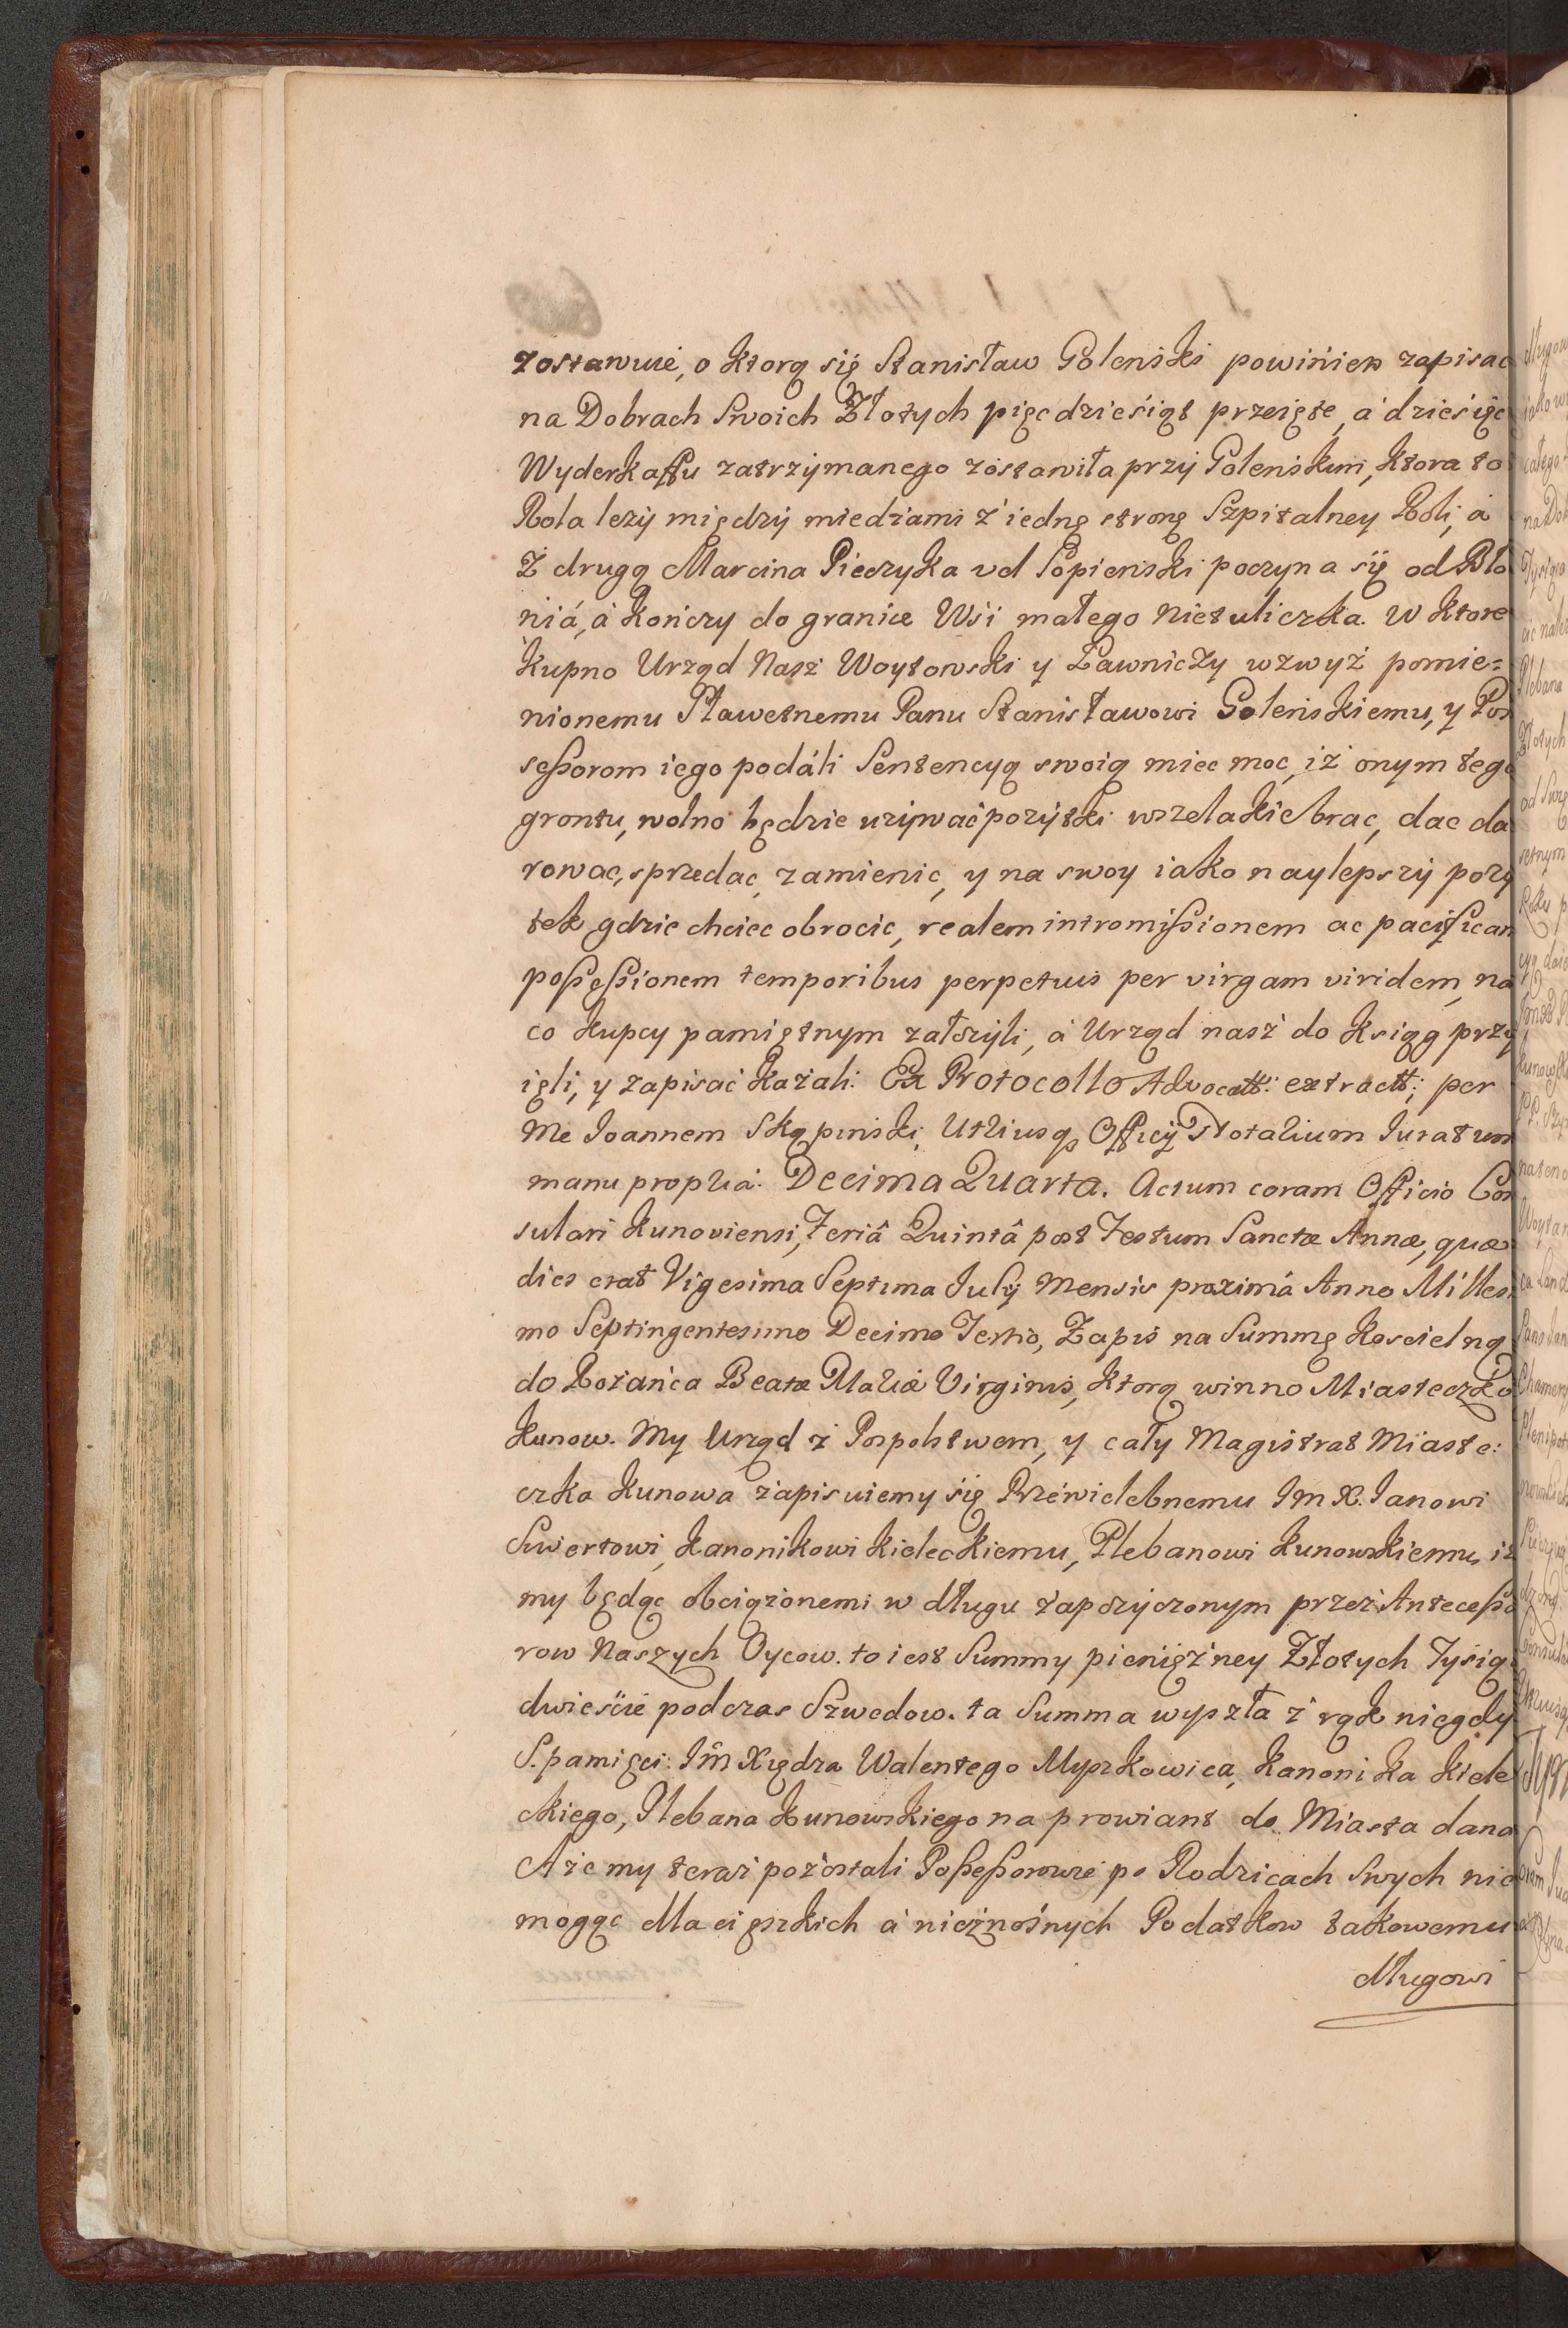 zostawuie, o ktorą się Stanisław Golenski powinien zapisac
na Dobrach Swoich Złotych pięcdzieśiąt przeięte, á dzieśięc
Wyderkaffu zatrzymanego zostawiła przy Golenskim, ktora to
Rola lezy między miedzami z iednę stronę Szpitalney Roli, á
Z drugą Marcina Pieczyka vel Sopienski poczyna się od Bło
niá, á kończy do granice Wśi małego Nietuliczka. W ktore
kupno Urząd Nasz Woytowski y Ławniczy wzwyż pomie=
nionemu Sławetnemu Panu Stanisławowi Golenskiemu, y Pos
seßorom iego podáli Sentencyą swoią miec moc, iż onym tego
grontu, wolno będzie uzywać pozytki wszelakie brac, dac da
rowac, sprzedac, zamienic, y na swoy iako naylepszy pozy
tek gdzie chciec obrocic, realem intromißionem ac pacificam
poßeßionem temporibus perpetuis per virgam viridem, na
co kupcy pamiętnym załozyli, á Urząd nasz do Ksiąg przy
ięli, y zapisać kazali: Ex Protocollo Advocatt: extractt; per
Me Ioannem Skąpinski, Utriusq; Officij Notarium Iuratum
manu propria: Decima Quarta. Actum coram Officio Con
sulari Kunoviensi, Feriâ Quintâ post Festum Sanctæ Annæ, quæ
dies erat Vigesima Septima Iulij Mensis proximá Anno Milles:
mo Septingentesimo Decimo Tertio, Zapis na Summę Koscielną
do Rożańca Beatæ Mariæ Virginis, ktorą winno Miasteczko
Kunow. My Urząd z Pospolstwem, y cały Magistrat Miaste:
czka Kunowa zapisuiemy się Przewielebnemu Im X. Ianowi
Swertowi, Kanonikowi Kieleckiemu, Plebanowi Kunowskiemu, iż
my będąc obciązonemi w długu zapozyczonym przez Anteceßo
row Naszych Oycow. to iest Summy pieniężney Złotych Tysiąc
dwieście podczas Szwedow. ta Summa wyszła z rąk niegdy
S. pamięci: Im Xiędza Walentego Myszkowica, Kanonika Kiele
ckiego, Plebana Kunowskiego na prowiant do Miasta dana
A że my teraz pozostali Poßeßorowie po Rodzicach Swych nie
mogąc dla cięszkich á nieznośnych Podatkow takowemu
długowi